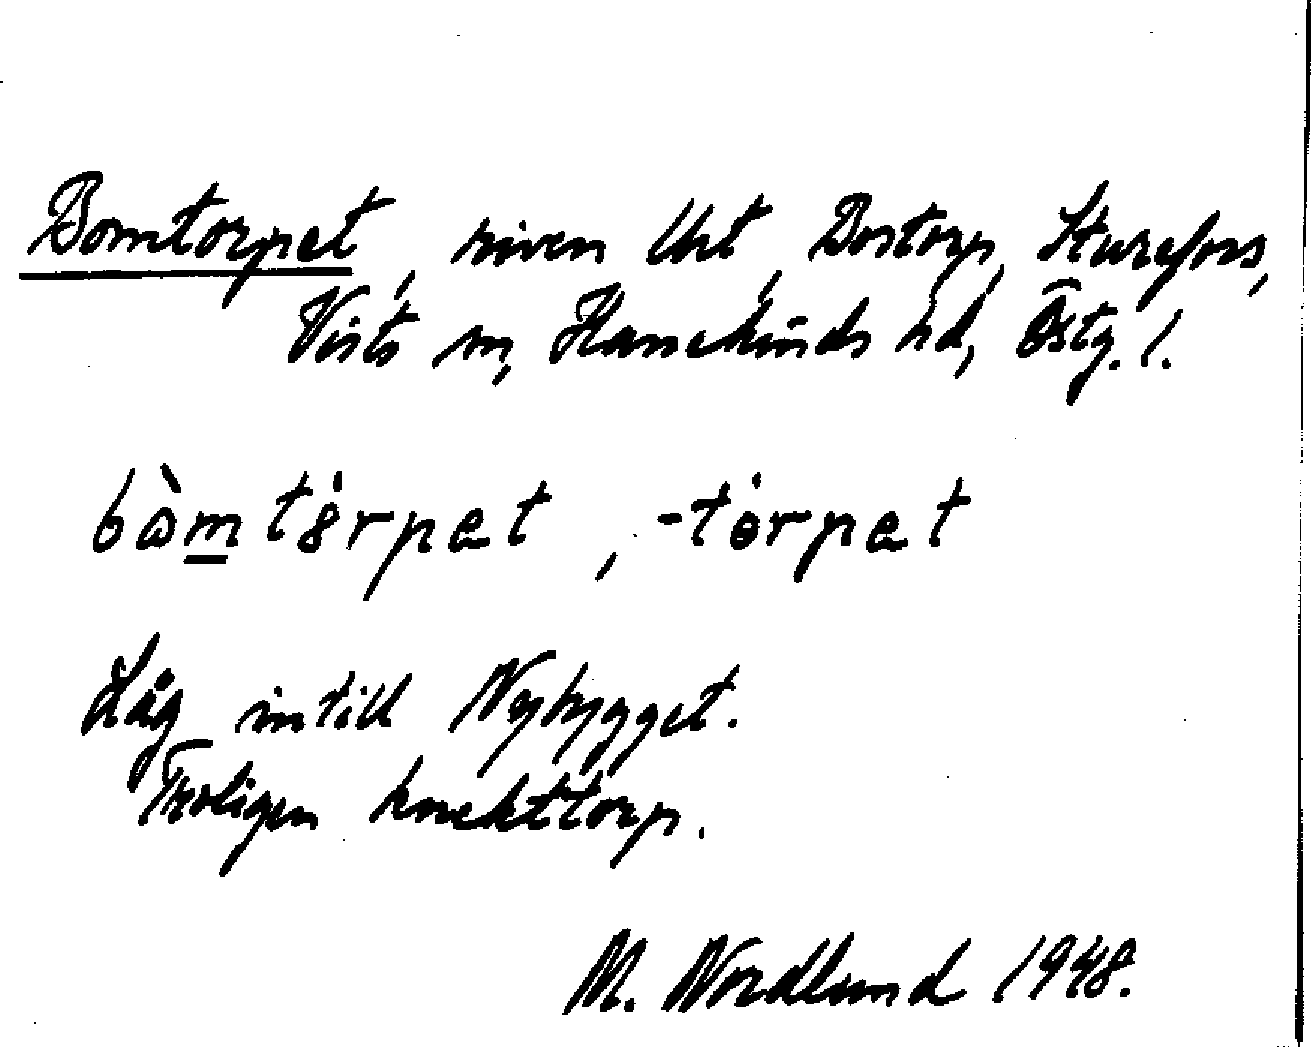 Bomtorpet, riven lht, Bostorp, Sturefors,
Vists sn, Hanekinds hd, Östg. l.
bàmtörpet, -törpet
Låg intill Nybygget.
Troligen knekttorp.
M. Nordlund 1948.